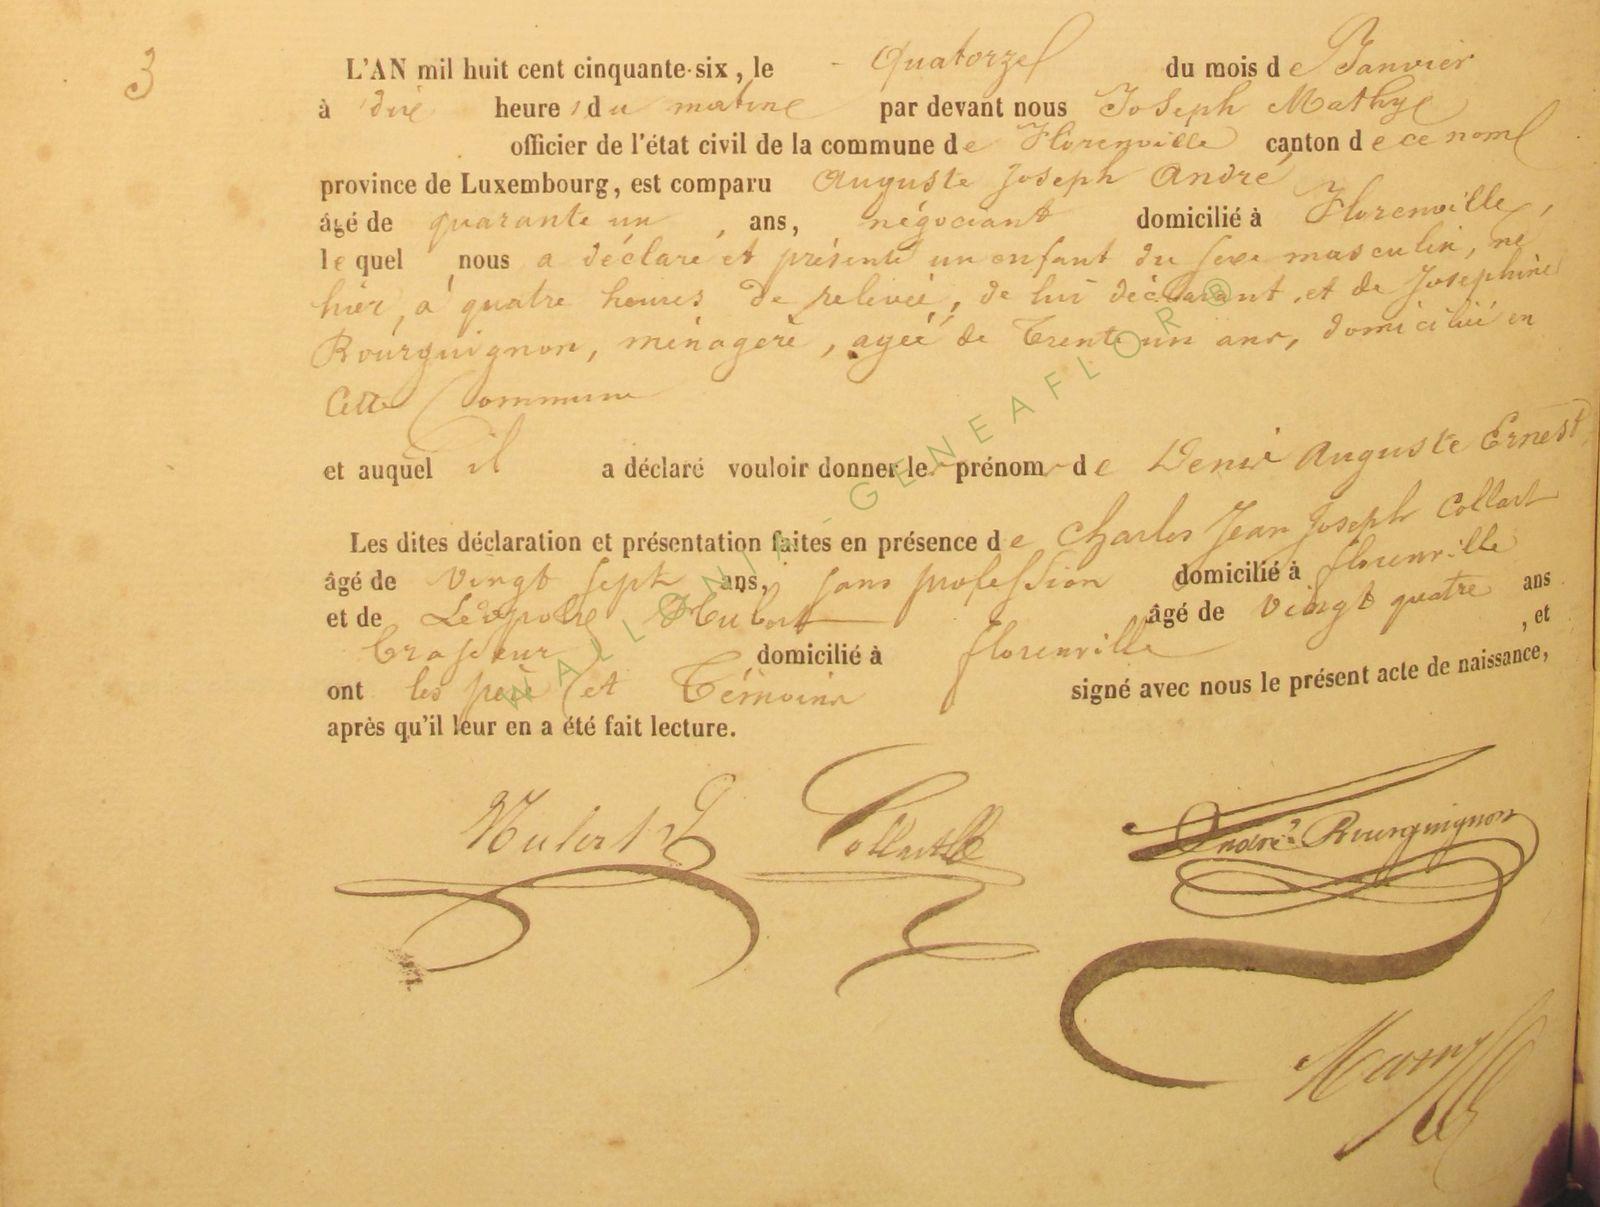 3
L'AN mil huit cent cinquante-six, le - quatorze du mois de Janvier
à dix heures du matin par devant nous Joseph Mathy
officier de l'état civil de la commune de Florenville canton de ce nom
province de Luxembourg, est comparu Auguste Joseph André
âgé de quarante un, ans, négociant domicilié à Florenville,
lequel nous a déclaré et présenté un enfant du sexe masculin, né
hier, à quatre heures de relevée, de lui déclarant, et de Josephine
Bourguignon, ménagère, agée de trente un ans, domiciliée en
cette Commune
et auquel il a déclaré vouloir donner les prénoms de Denis Auguste Ernest
Les dites déclaration et présentation faites en présence de Charles Jean Joseph Collart
âgé de vingt sept ans, sans profession domicilié à florenville
et de Léopold Hubert âgé de vingt quatre ans
brasseur domicilié à florenville, et
ont les père et témoins signé avec nous le présent acte de naissance,
après qu'il leur en a été fait lecture.
Hubert L Collart André-Bourguignon
Mathy
WALLONIA - GENEAFLOR ®